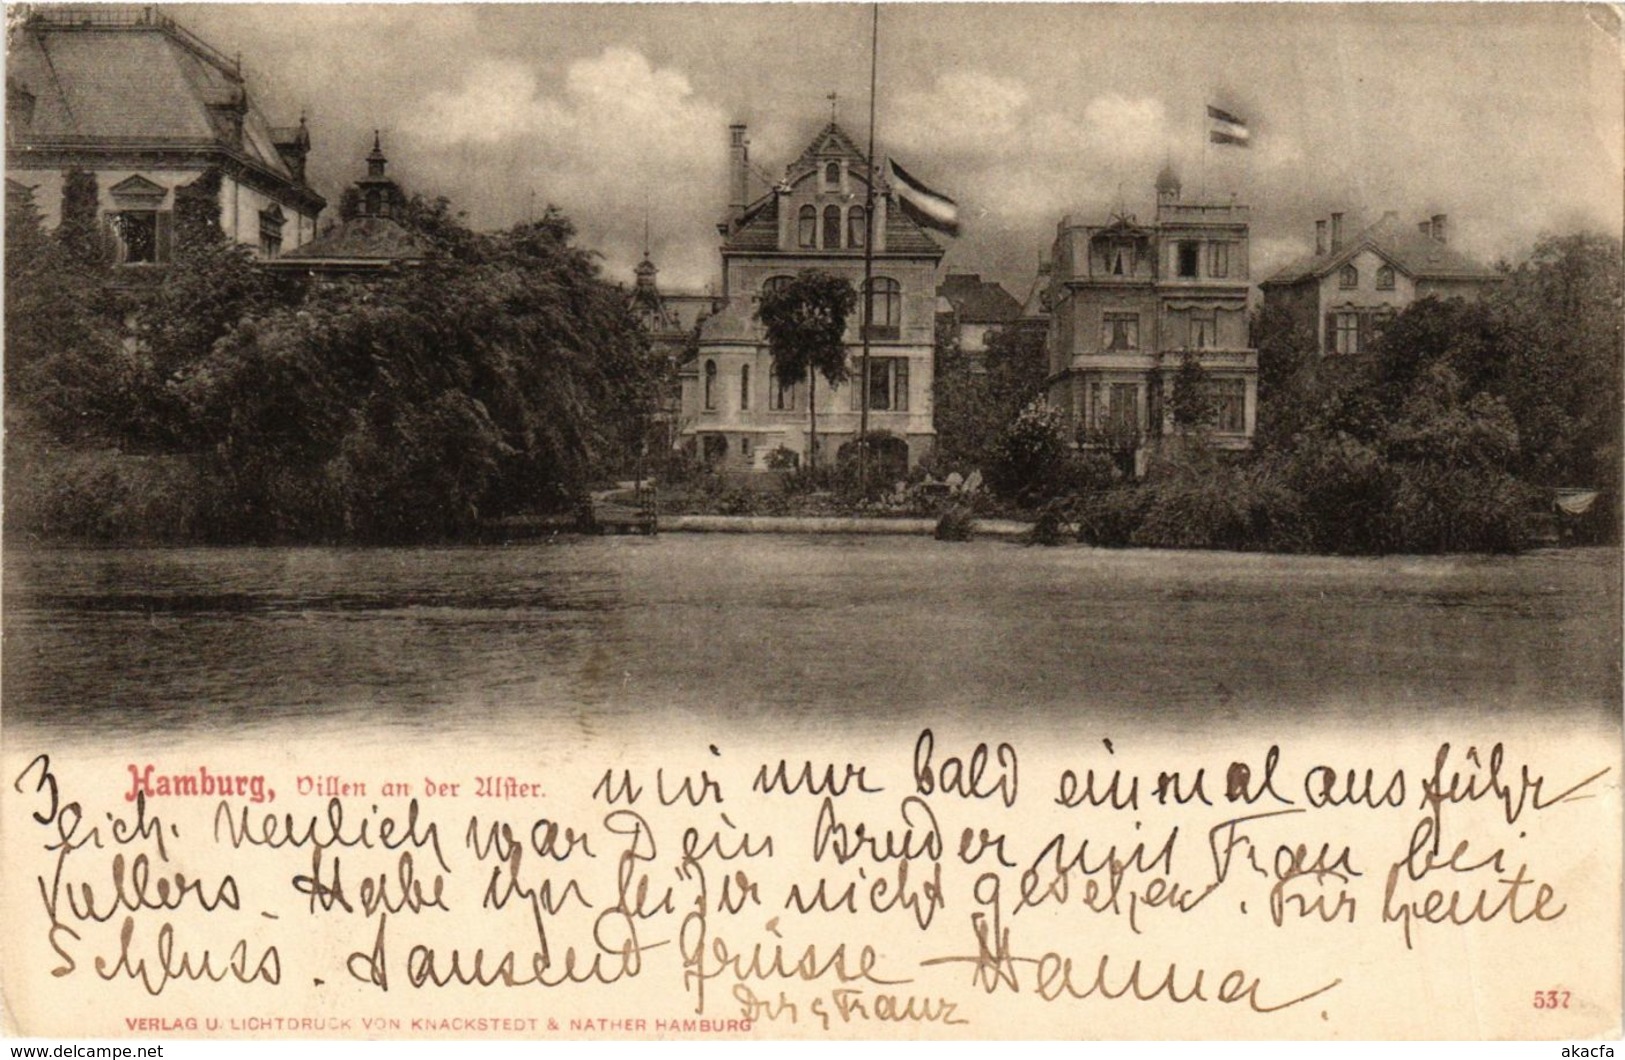 Hamburg, Villen an der Alster.
3 mir nur bald einmal ausführ-
lich. Neulich war Dein Bruder mit Frau bei
Vullers. Habe ihn leider nicht gesehen. Für heute
Schluss. Tausend Grüsse – Hanna.
Dir & Franz
VERLAG U. LICHTDRUCK VON KNACKSTEDT & NATHER HAMBURG
537
akacfa
akacfa-delcampe.com